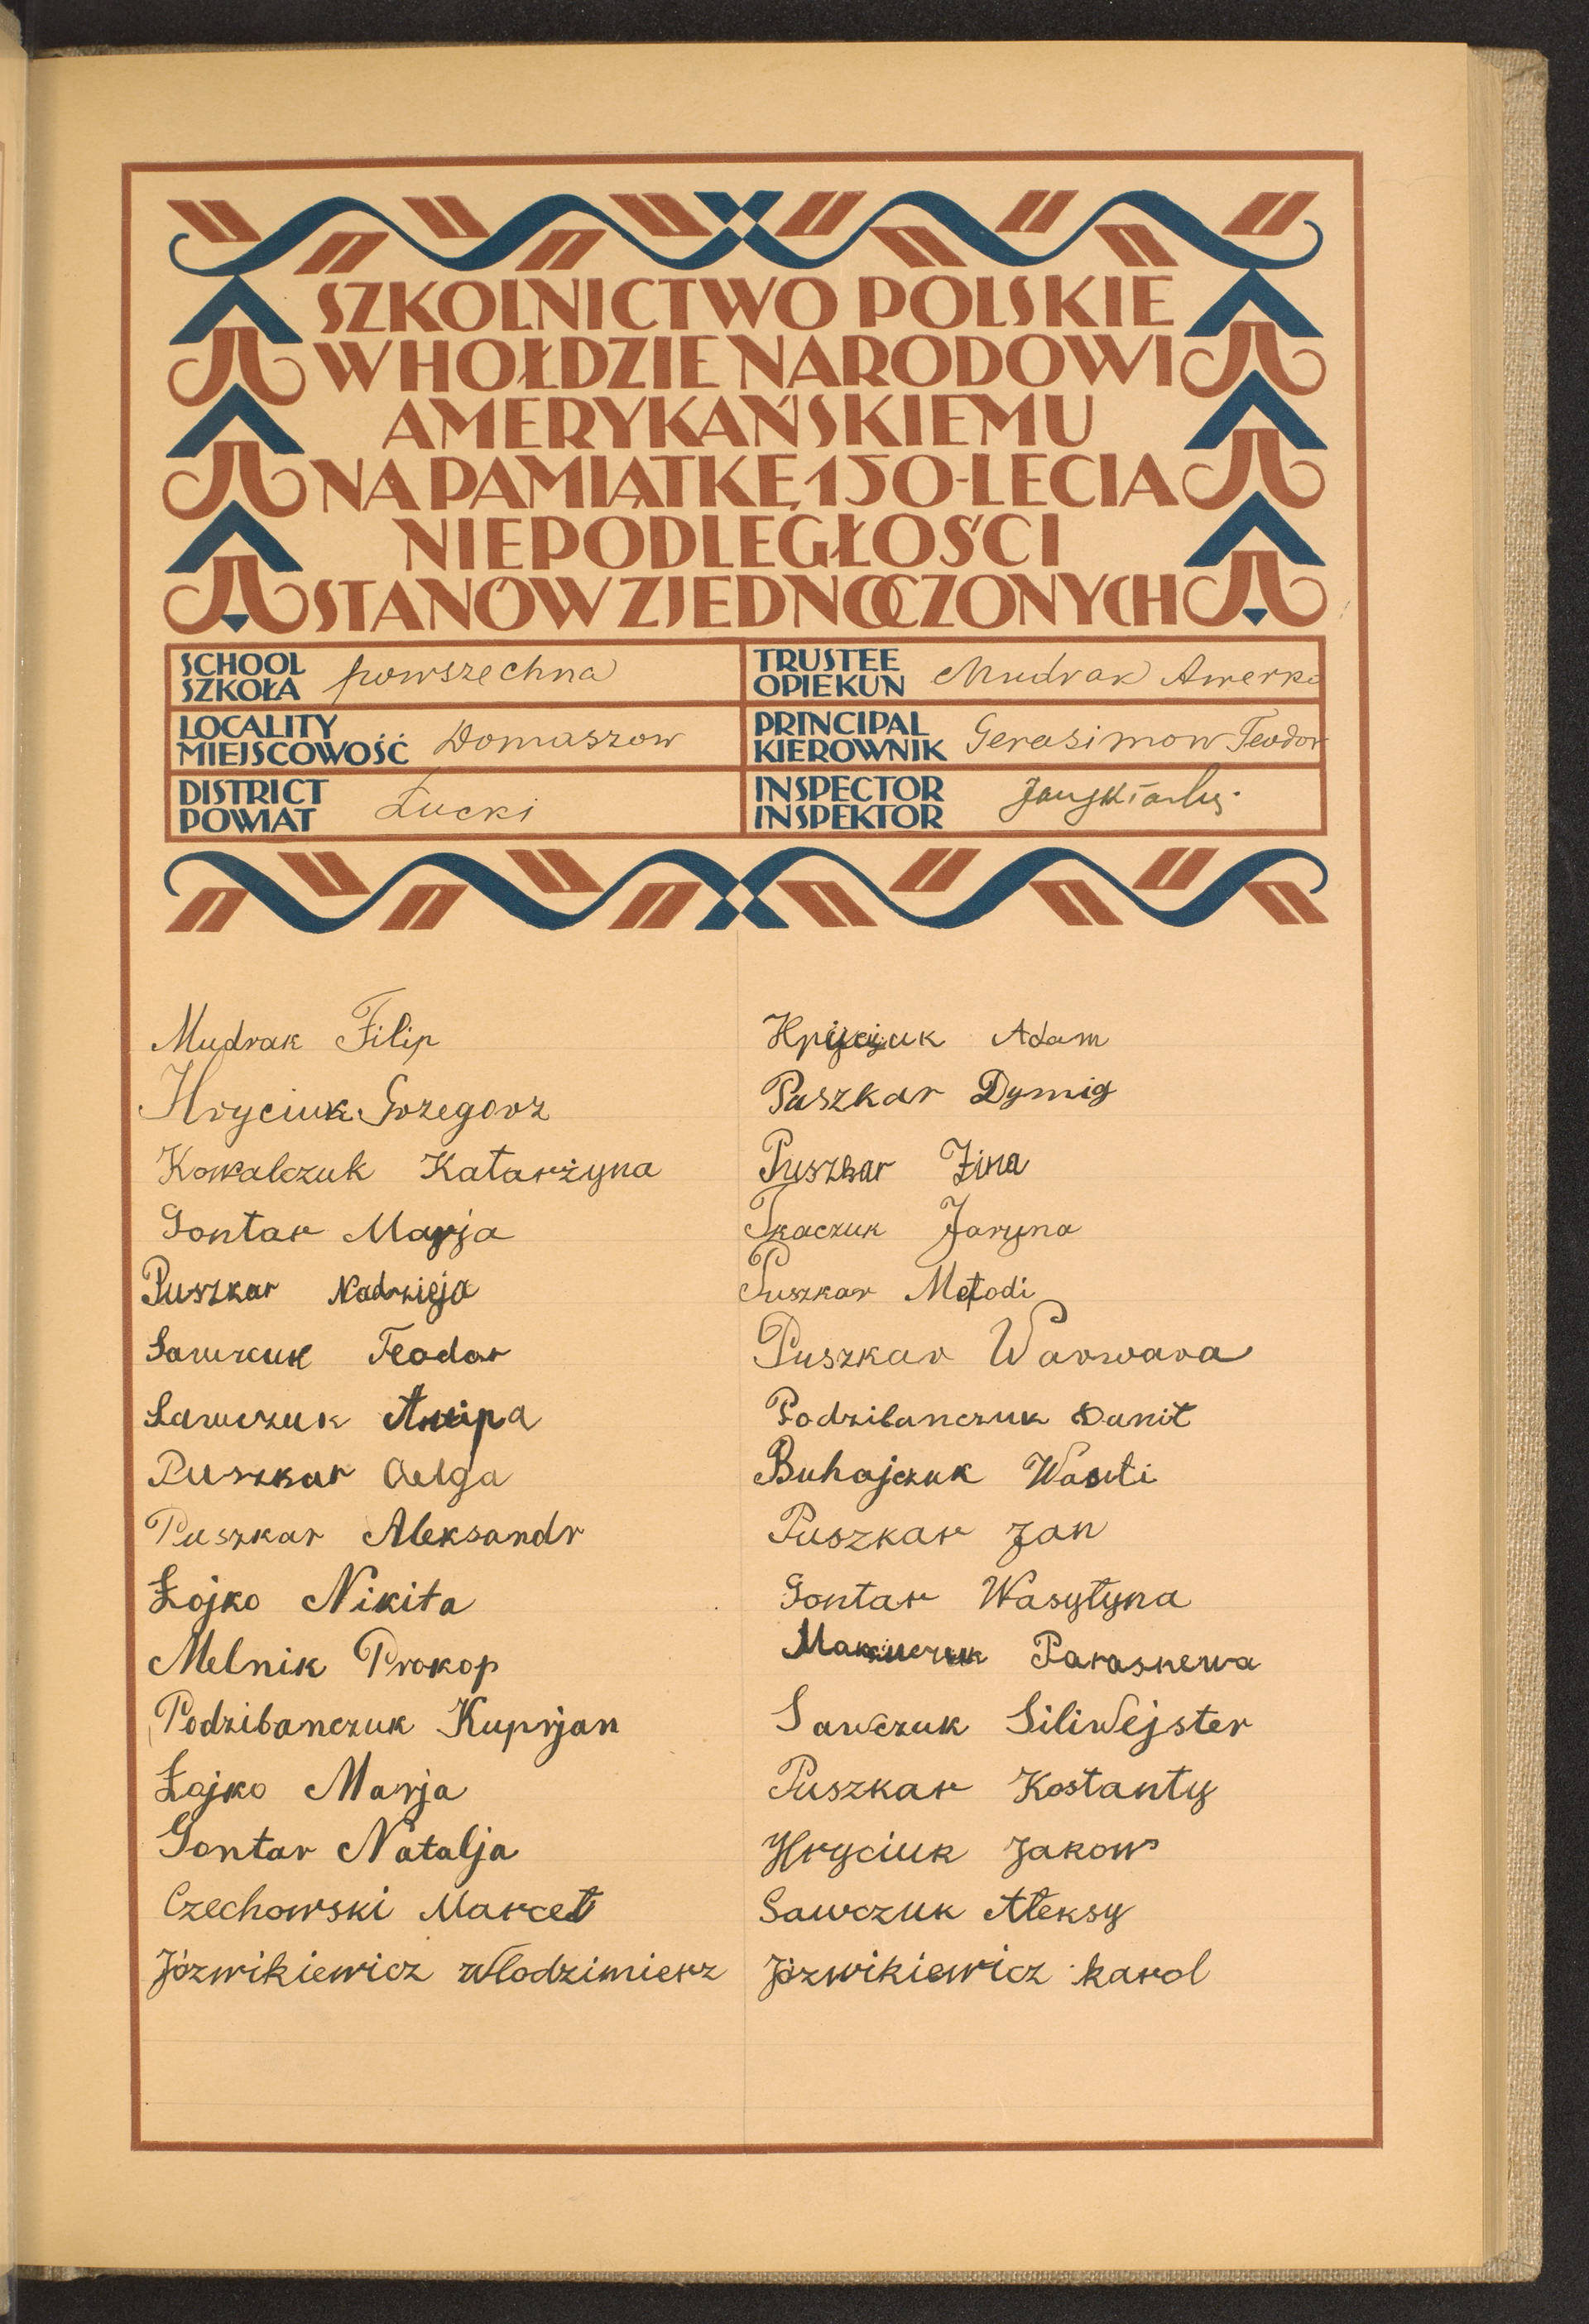 SZKOLNICTWO POLSKIE
W HOŁDZIE NARODOWI
AMERYKAŃSKIEMU
NA PAMIĄTKĘ 150-LECIA
NIEPODLEGŁOŚCI
STANÓW ZJEDNOCZONYCH
SCHOOL
SZKOŁA powszechna
TRUSTEE
OPIEKUN Mudrak Awerko
LOCALITY
MIEJSCOWOŚĆ Domaszow
PRINCIPAL
KIEROWNIK Gerasimow Teodor
DISTRICT
POWIAT Łucki
INSPECTOR
INSPEKTOR
Mudrak Filip
Hryciuk Grzegorz
Kowalczuk Katarżyna
Gontar Marja
Puszkar Nadzieja
Sawczuk Teodor
Sawczuk Antipa
Puszkar Oelga
Puszkar Aleksandr
Łojko Nikita
Melnik Prokop
Podzibanczuk Kuprjan
Łojko Marja
Gontar Natalja
Czechowski Marceł
Józwikiewicz Włodzimierz
Adam
Puszkar Dymig
Puszkar Zina
Tkaczuk Jaryna
Puszkar Metodi
Puszkar Warwara
Podzibanczuk Danił
Buhajczuk Wasili
Puszkar Jan
Gontar Wasyłyna
Paraskewa
Sawczuk Siliwejster
Puszkar Kostanty
Hryciuk Jakow
Sawczuk Ałeksy
Józwikiewicz karol